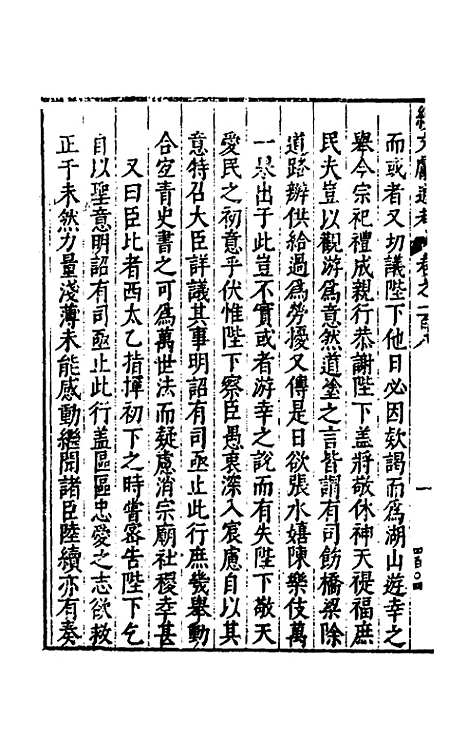 續文獻通考 卷之一百八 一 四百〇四
而或者又切議陛下他日必因欵謁而爲湖山遊幸之
舉今宗祀禮成親行恭謝陛下盖將敬休神天禔福庶
民夫豈以觀游爲意然道塗之言皆謂有司飭橋梁除
道路辦供給過爲勞擾又傳是日欲張水嬉陳樂伎萬
一果出于此豈不實或者游幸之說而有失陛下敬天
愛民之初意乎伏惟陛下察臣愚衷深入宸慮自以其
意特召大臣詳議其事明詔有司亟止此行庶幾舉動
合宜青史書之可爲萬世法而疑慮消宗廟社稷幸甚
又曰臣比者西太乙指揮初下之時嘗密告陛下乞
自以聖意明詔有司亟止此行盖區區忠愛之志欲救
正于未然力量淺薄未能感動繼聞諸臣陸續亦有奏